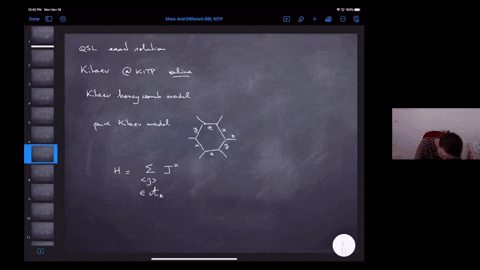 12:43 PM Mon Nov 18
100%
Done
More And Different SBL KITP
QSL exact solution
Kitaev @ KITP online
Kitaev honeycomb model
pure Kitaev model
z
y
x
z
x
y
z
H = Σ J^x
<ij>
1
2
3
4
5
6
7
8
9
10
11